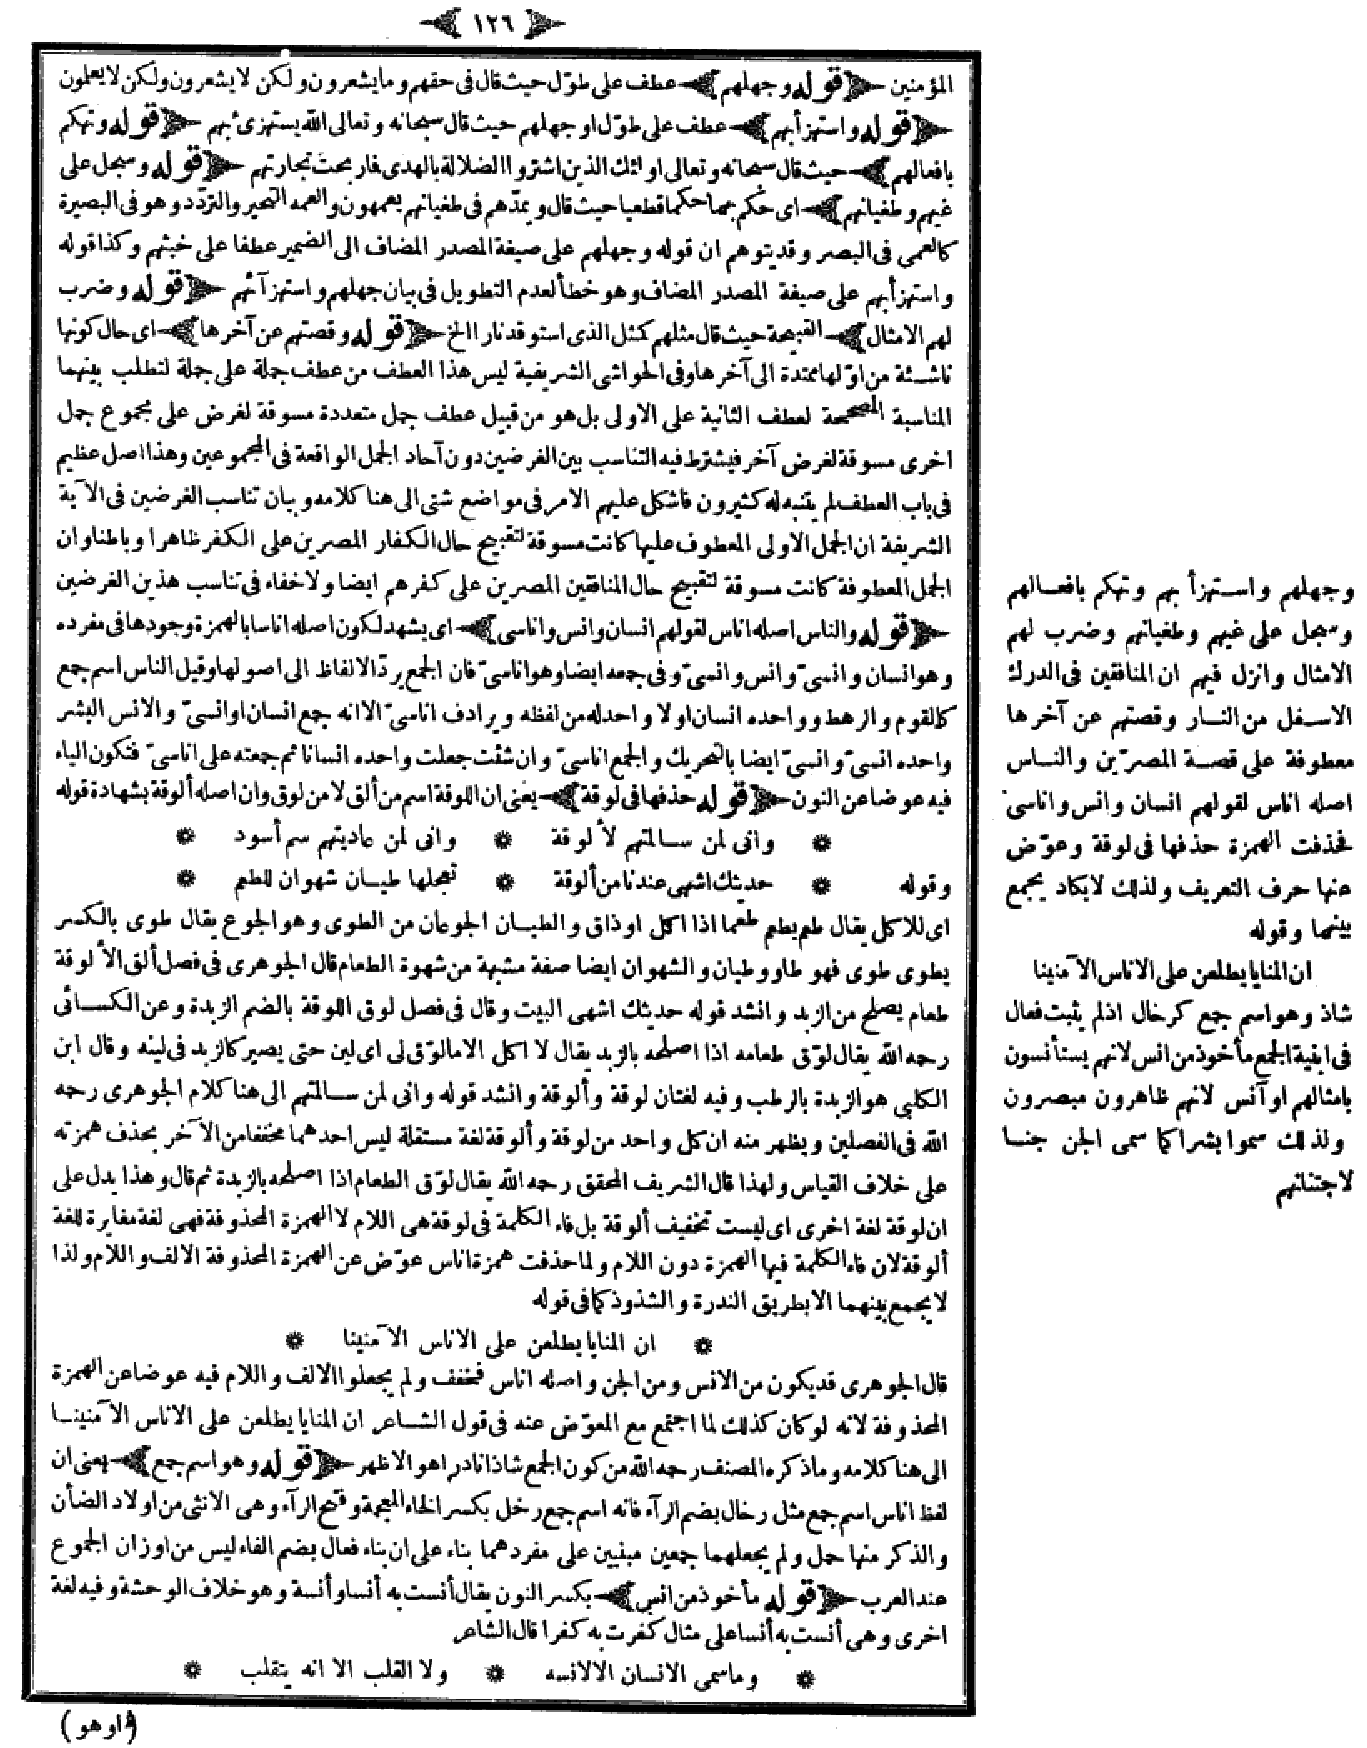 ١٢٦
المؤمنين قوله وجهلهم عطف على طوّل حيث قال فى حقهم وما يشعرون ولكن لا يشعرون ولكن لا يعلمون
قوله واستهزأ بهم عطف على طوّل او جهلهم حيث قال سبحانه وتعالى الله يستهزئ بهم قوله وتهكم
بافعالهم حيث قال سبحانه وتعالى اولئك الذين اشتروا الضلالة بالهدى فما ربحت تجارتهم قوله وسجل على
غيهم وطغيانهم اى حكم بهما حكما قطعيا حيث قال ويمدّهم فى طغيانهم يعمهون والعمه التحير والتردّد وهو فى البصيرة
كالعمى فى البصر وقد يتوهم ان قوله وجهلهم على صيغة المصدر المضاف الى الضمير عطفا على خبثهم وكذا قوله
واستهزأ بهم على صيغة المصدر المضاف وهو خطأ لعدم التطويل فى بيان جهلهم واستهزآئهم قوله وضرب
لهم الامثال القبيحة حيث قال مثلهم كمثل الذى استوقد نارا الخ قوله وقصتهم عن آخرها اى حال كونها
ناشئة من اوّلها ممتدة الى آخرها وفى الحواشى الشريفية ليس هذا العطف من عطف جملة على جملة لتطلب بينهما
المناسبة المصححة لعطف الثانية على الاولى بل هو من قبيل عطف جمل متعددة مسوقة لغرض على مجموع جمل
اخرى مسوقة لغرض آخر فيشترط فيه التناسب بين الغرضين دون آحاد الجمل الواقعة فى المجموعين وهذا اصل عظيم
فى باب العطف لم يتنبه له كثيرون فاشكل عليهم الامر فى مواضع شتى الى هنا كلامه وبيان تناسب الغرضين فى الآية
الشريفة ان الجمل الاولى المعطوف عليها كانت مسوقة لتقبيح حال الكفار المصرين على الكفر ظاهرا وباطنا وان
الجمل المعطوفة كانت مسوقة لتقبيح حال المنافقين المصرين على كفرهم ايضا ولا خفاء فى تناسب هذين الغرضين
قوله والناس اصله اناس لقولهم انسان وانس واناسى اى يشهد لكون اصله اناسا بالهمزة وجودها فى مفرده
وهو انسان وانسىّ وانس وانسىّ وفى جمعه ايضا وهو اناسىّ فان الجمع يردّ الالفاظ الى اصولها وقيل الناس اسم جمع
كالقوم والرهط وواحده انسان اولا واحد له من لفظه ويرادف اناسىّ الا انه جمع انسان او انسىّ والانس البشر
واحده انسىّ وانسىّ ايضا بالتحريك والجمع اناسىّ وان شئت جعلت واحده انسانا ثم جمعته على اناسىّ فتكون الياء
فيه عوضا عن النون قوله حذفها فى لوقة يعنى ان اللوقة اسم من ألق لا من لوق وان اصله ألوقة بشهادة قوله
وانى لمن سالمتهم لألوقة وانى لمن عاديتهم سم أسود
وقوله حديثك اشهى عندنا من ألوقة تعجلها طيان شهوان للطم
اى للاكل يقال طعم يطعم طعما اذا اكل او ذاق والطيان الجوعان من الطوى وهو الجوع يقال طوى بالكسر
يطوى طوى فهو طاو وطيان والشهوان ايضا صفة مشبهة من شهوة الطعام قال الجوهرى فى فصل ألق الألوقة
طعام يصلح من الزبد وانشد قوله حديثك اشهى البيت وقال فى فصل لوق اللوقة بالضم الزبدة وعن الكسائى
رحمه الله يقال لوّق طعامه اذا اصلحه بالزبد يقال لا اكل الا ما لوّق لى اى لين حتى يصير كالزبد فى لينه وقال ابن
الكلبى هو الزبدة بالرطب وفيه لغتان لوقة وألوقة وانشد قوله وانى لمن سالمتهم الى هنا كلام الجوهرى رحمه
الله فى الفصلين ويظهر منه ان كل واحد من لوقة وألوقة لغة مستقلة ليس احدهما مخففا من الآخر بحذف همزته
على خلاف القياس ولهذا قال الشريف المحقق رحمه الله يقال لوّق الطعام اذا اصلحه بالزبدة ثم قال وهذا يدل على
ان لوقة لغة اخرى اى ليست تخفيف ألوقة بل فاء الكلمة فى لوقة هى اللام لا الهمزة المحذوفة فهى لغة مغايرة للغة
ألوقة لان فاء الكلمة فيها الهمزة دون اللام ولما حذفت همزة اناس عوّض عن الهمزة المحذوفة الالف واللام ولذا
لا يجمع بينهما الا بطريق الندرة والشذوذ كما فى قوله
ان المنايا يطلعن على الاناس الآمنينا
قال الجوهرى قد يكون من الانس ومن الجن واصله اناس فخفف ولم يجعلوا الالف واللام فيه عوضا عن الهمزة
المحذوفة لانه لو كان كذلك لما اجتمع مع المعوّض عنه فى قول الشاعر ان المنايا يطلعن على الاناس الآمنينا
الى هنا كلامه وما ذكره المصنف رحمه الله من كون الجمع شاذا نادرا هو الاظهر قوله وهو اسم جمع يعنى ان
لفظ اناس اسم جمع مثل رخال بضم الرآء فانه اسم جمع رخل بكسر الخاء المعجمة وفتح الرآء وهى الانثى من اولاد الضأن
والذكر منها حمل ولم يجعلهما جمعين مبنيين على مفردهما بناء على ان بناء فعال بضم الفاء ليس من اوزان الجموع
عند العرب قوله مأخوذ من انس بكسر النون يقال أنست به أنسا وأنسة وهو خلاف الوحشة وفيه لغة
اخرى وهى أنست به أنسا على مثال كفرت به كفرا قال الشاعر
وما سمى الانسان الا لانسه ولا القلب الا انه يتقلب
(او هو)
وجهلهم واستهزأ بهم وتهكم بافعالهم
وسجل على غيهم وطغيانهم وضرب لهم
الامثال وانزل فيهم ان المنافقين فى الدرك
الاسفل من النار وقصتهم عن آخرها
معطوفة على قصة المصرّين والناس
اصله اناس لقولهم انسان وانس واناسىّ
فحذفت الهمزة حذفها فى لوقة وعوّض
عنها حرف التعريف ولذلك لا يكاد يجمع
بينهما وقوله
ان المنايا يطلعن على الاناس الآمنينا
شاذ وهو اسم جمع كرخال اذ لم يثبت فعال
فى ابنية الجمع مأخوذ من انس لانهم يستأنسون
بامثالهم او آنس لانهم ظاهرون مبصرون
ولذلك سموا بشرا كما سمى الجن جنا
لاجتنانهم